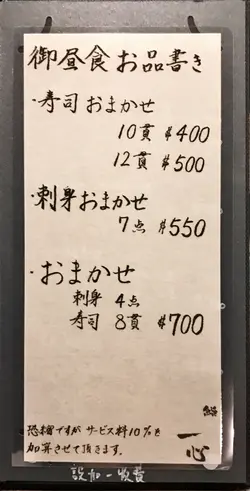 御昼食お品書き
・寿司おまかせ
10貫 $400
12貫 $500
・刺身おまかせ
7点 $550
・おまかせ
刺身 4点
寿司 8貫 $700
恐縮ですがサービス料10%を
加算させて頂きます。
一心
設加一收費